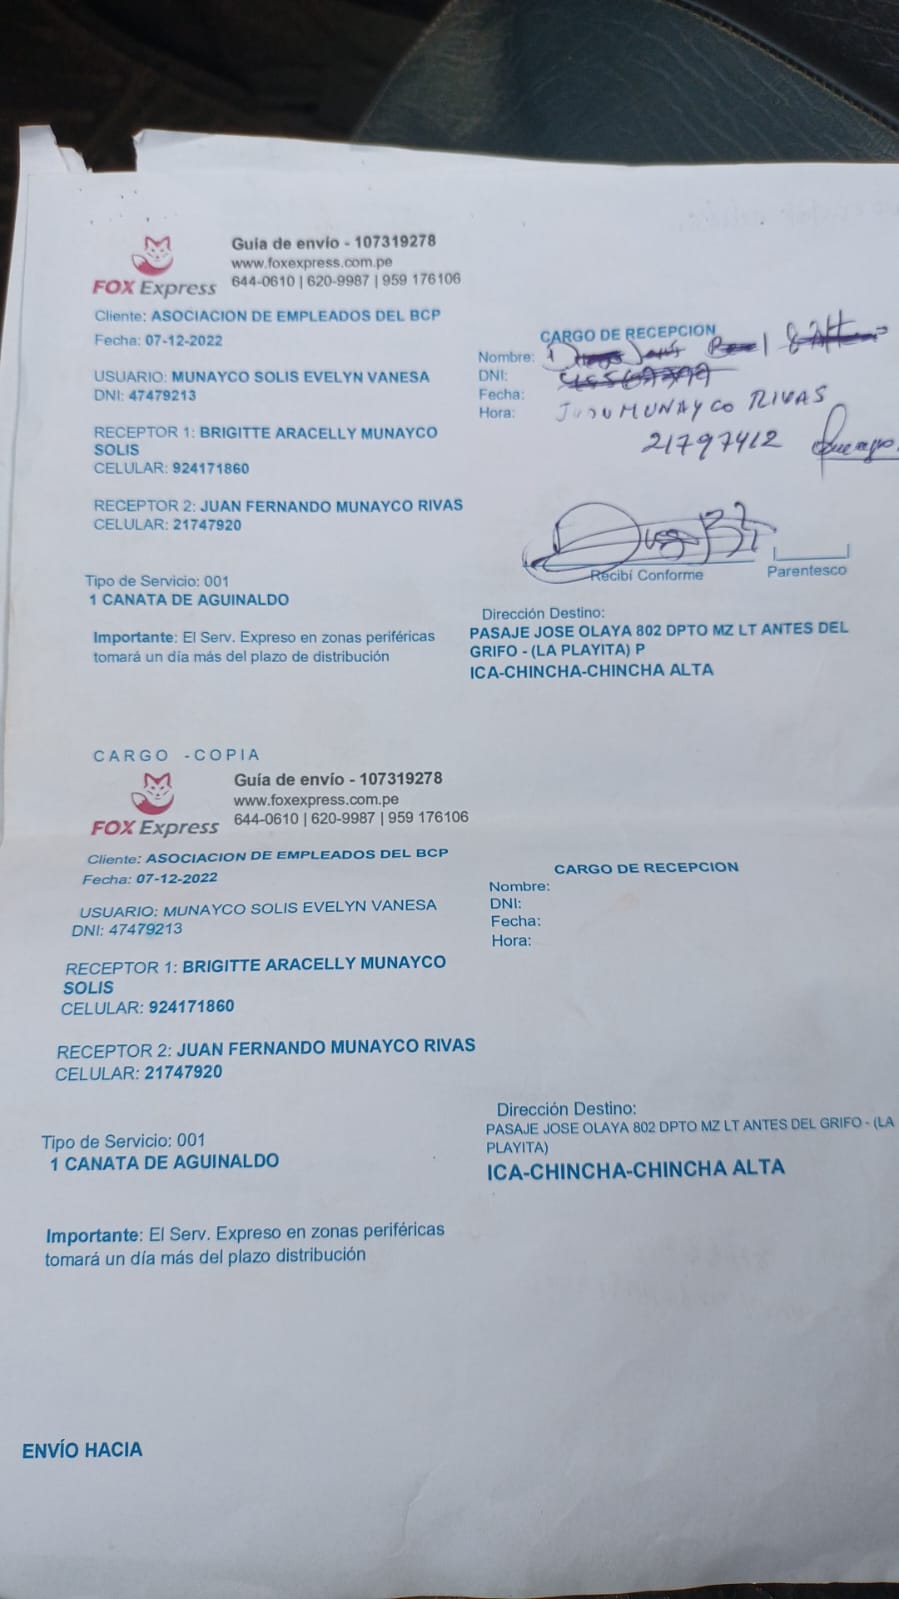 FOX Express
Guía de envio - 107319278
www.foxexpress.com.pe
644-0610 | 620-9987 | 959 176106
Cliente: ASOCIACION DE EMPLEADOS DEL BCP
Fecha: 07-12-2022
USUARIO: MUNAYCO SOLIS EVELYN VANESA
DNI: 47479213
RECEPTOR 1: BRIGITTE ARACELLY MUNAYCO
SOLIS
CELULAR: 924171860
RECEPTOR 2: JUAN FERNANDO MUNAYCO RIVAS
CELULAR: 21747920
Tipo de Servicio: 001
1 CANATA DE AGUINALDO
Importante: El Serv. Expreso en zonas periféricas
tomará un día más del plazo de distribución
CARGO DE RECEPCION
Nombre:
DNI:
Fecha:
Hora:
MUNAYCO RIVAS
21797412
Recibí Conforme
Parentesco
Dirección Destino:
PASAJE JOSE OLAYA 802 DPTO MZ LT ANTES DEL
GRIFO - (LA PLAYITA) P
ICA-CHINCHA-CHINCHA ALTA
CARGO -COPIA
FOX Express
Guía de envío - 107319278
www.foxexpress.com.pe
644-0610 | 620-9987 | 959 176106
Cliente: ASOCIACION DE EMPLEADOS DEL BCP
Fecha: 07-12-2022
USUARIO: MUNAYCO SOLIS EVELYN VANESA
DNI: 47479213
RECEPTOR 1: BRIGITTE ARACELLY MUNAYCO
SOLIS
CELULAR: 924171860
RECEPTOR 2: JUAN FERNANDO MUNAYCO RIVAS
CELULAR: 21747920
Tipo de Servicio: 001
1 CANATA DE AGUINALDO
Importante: El Serv. Expreso en zonas periféricas
tomará un día más del plazo distribución
CARGO DE RECEPCION
Nombre:
DNI:
Fecha:
Hora:
Dirección Destino:
PASAJE JOSE OLAYA 802 DPTO MZ LT ANTES DEL GRIFO - (LA
PLAYITA)
ICA-CHINCHA-CHINCHA ALTA
ENVÍO HACIA